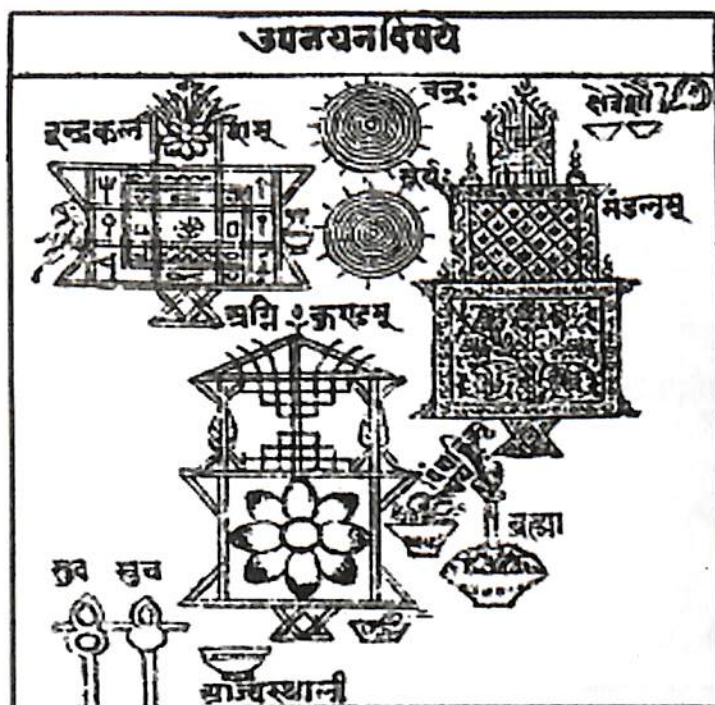 उपनयनविषये
चन्द्रः
इन्द्रकल शम्
सूर्यः
मंडलम्
अग्नि कुण्डम्
ब्रह्मा
स्रुव स्रुच
आज्यस्थाली